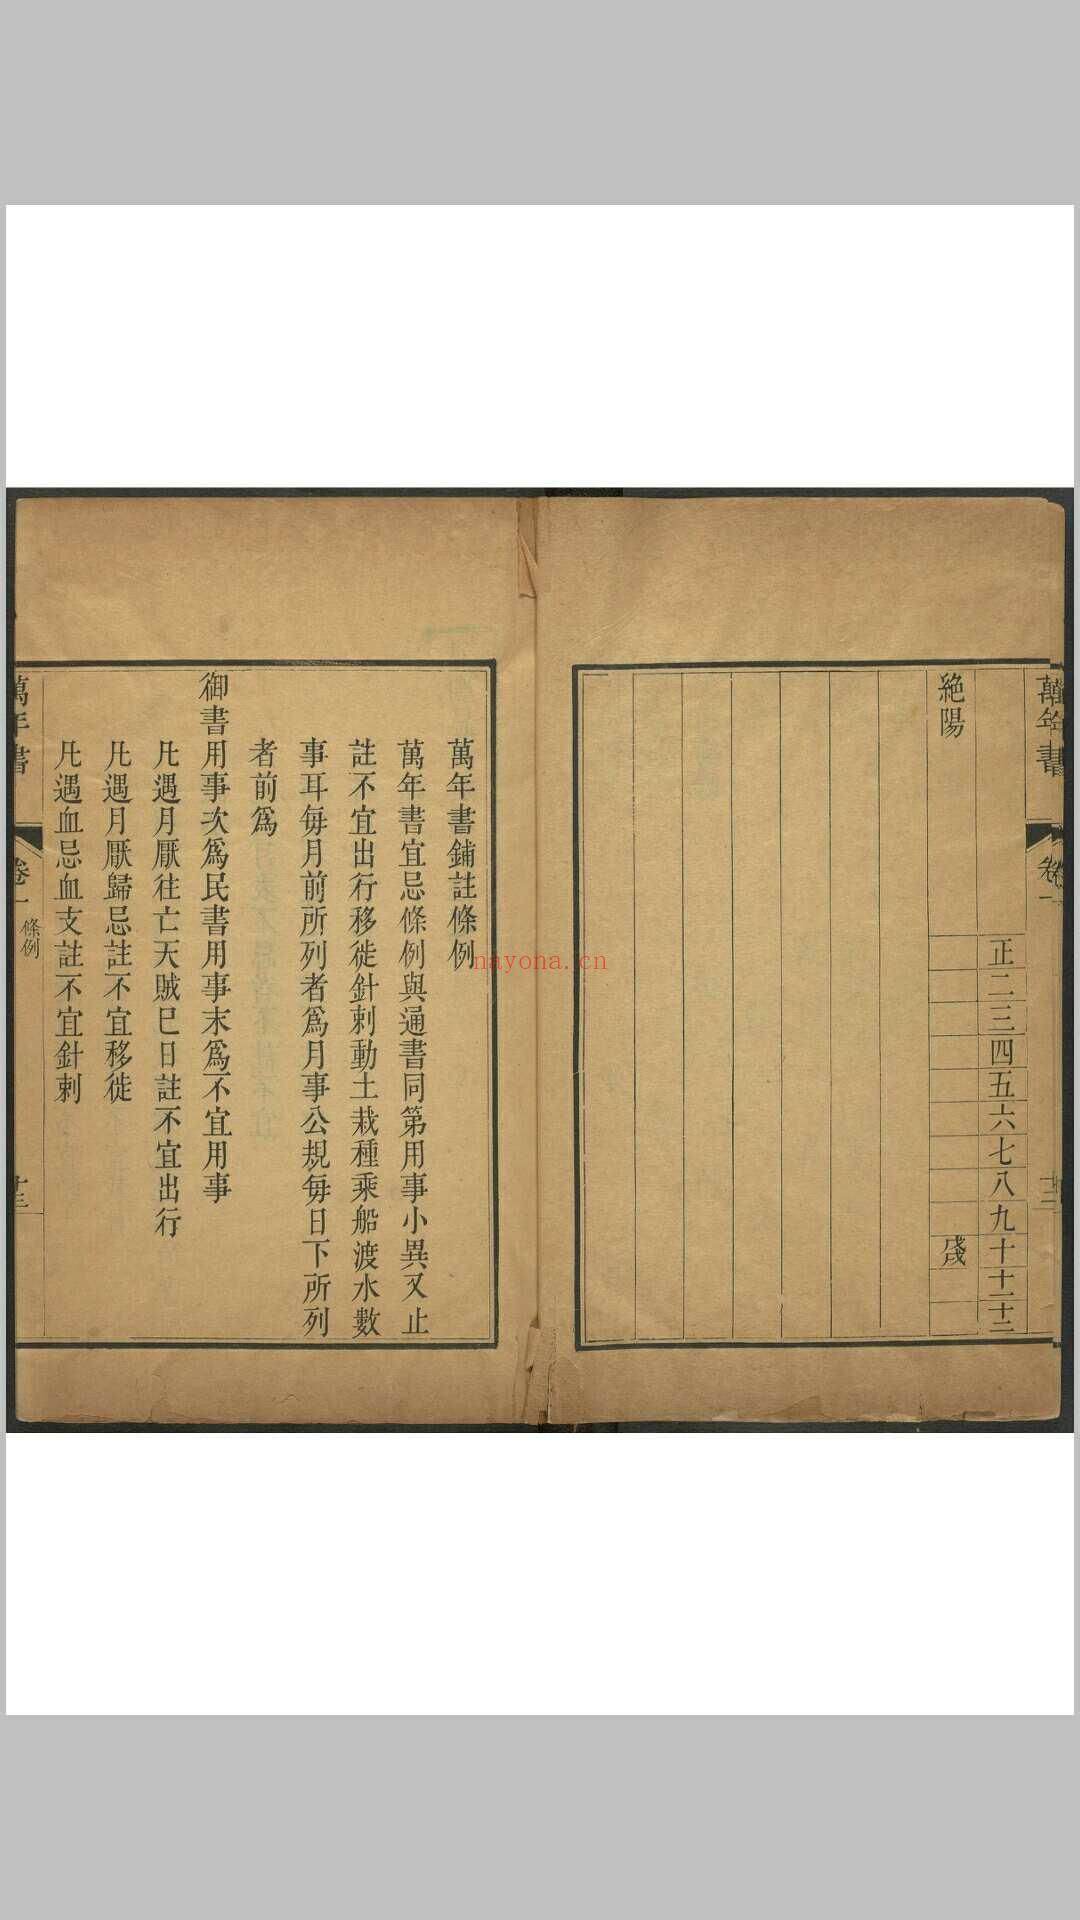 萬年書
卷一
十二
正二三四五六七八九十十一十二
絶陽
戌
萬年書鋪註條例
萬年書宜忌條例與通書同第用事小異又止
註不宜出行移徙針刺動土栽種乘船渡水數
事耳每月前所列者爲月事公規每日下所列
者前爲
御書用事次爲民書用事末爲不宜用事
凡遇月厭往亡天賊巳日註不宜出行
凡遇月厭歸忌註不宜移徙
凡遇血忌血支註不宜針刺
萬年書
卷一
條例
十三
nayona.cn